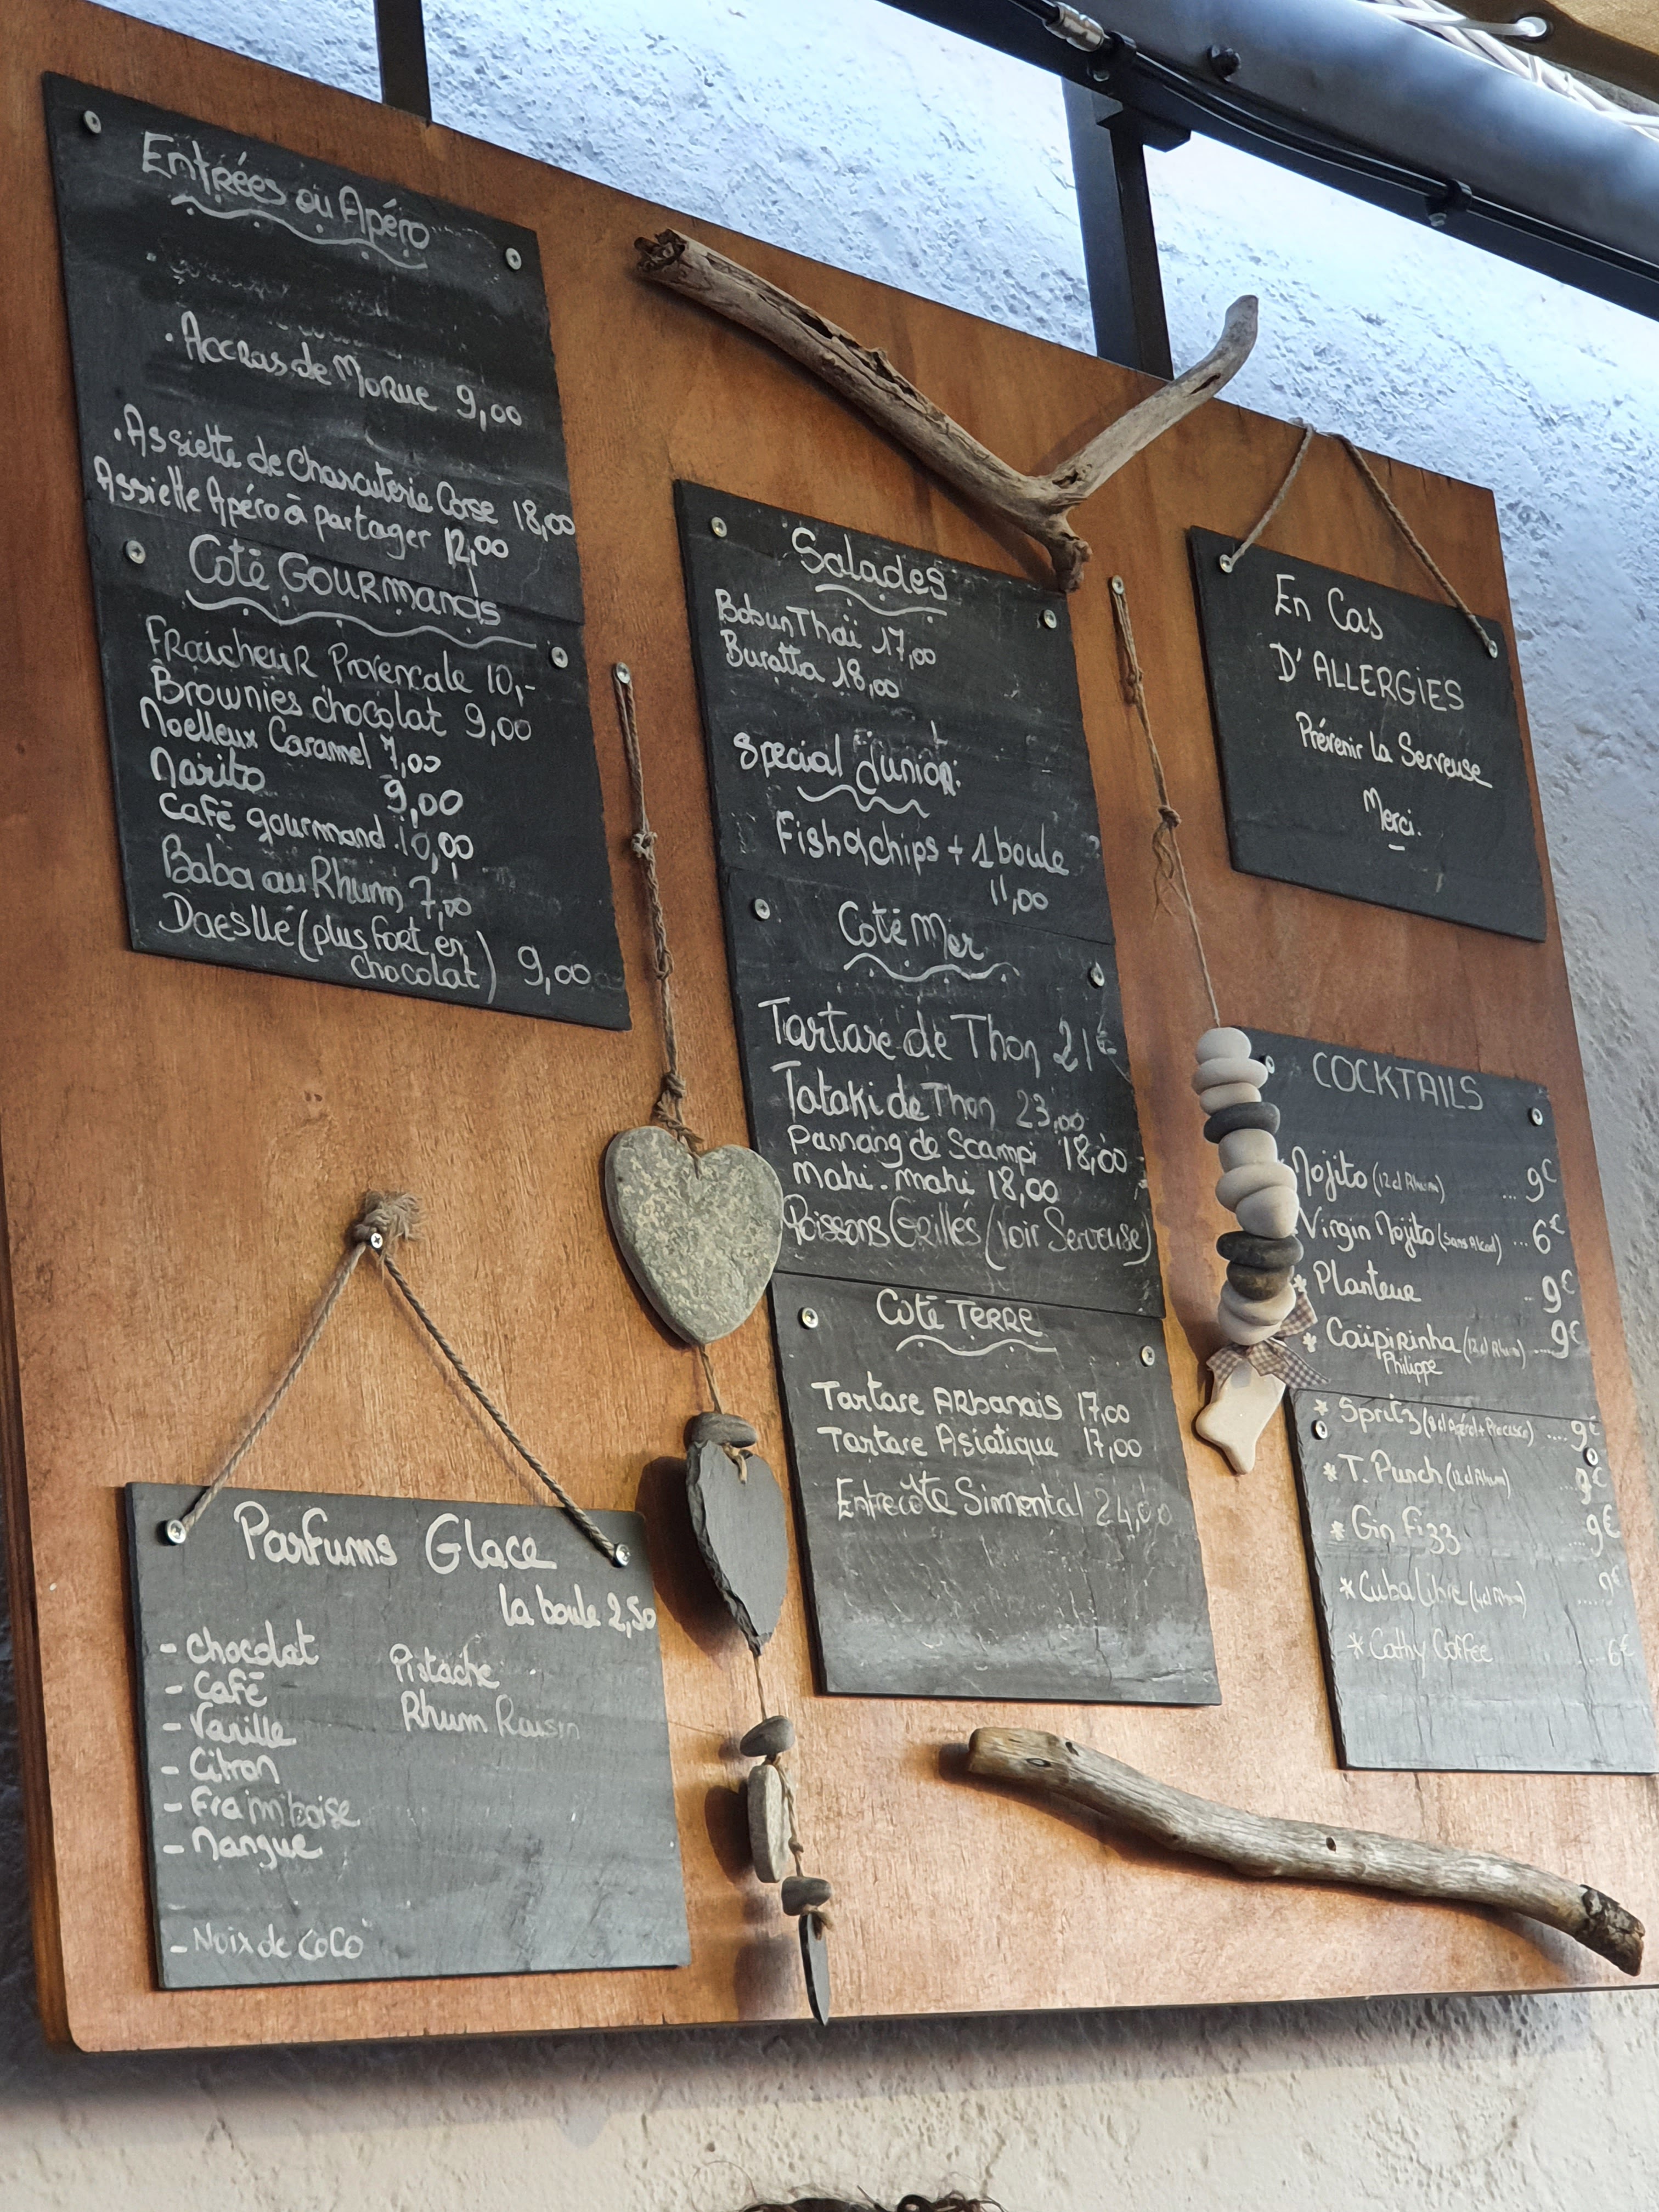 Entrées ou Apéro
. Accras de Morue 9,00
. Assiette de Charcuterie Corse 18,00
Assiette Apéro à partager 12,00
Coté GOURMANDS
FRaicheuR Provencale 10,-
Brownies chocolat 9,00
Moelleux Caramel 7,00
Marito 9,00
Café gourmand.10,00
Baba au Rhum 7,00
Daesllé (plus fort en
chocolat) 9,00
Salades
Bobun Thaï 17,00
Buratta 18,00
Special Junior:
Fish & chips + 1 boule
11,00
Coté Mer
Tartare de Thon 21€
Tataki de Thon 23,00
Pannang de Scampi 18,00
Mahi.mahi 18,00
Poissons Grillés (Voir Serveuse)
Coté TERRE
Tartare ARbanais 17,00
Tartare Asiatique 17,00
Entrecôte Simental 24,00
En Cas
D'ALLERGIES
Prévenir la Serveuse
Merci.
COCKTAILS
Mojito (12cl Rhum) ... 9€
Virgin Mojito (sans Alcool) ... 6€
* Planteur .. 9€
* Caïpirinha (12cl Rhum) .... 9€
Philippe
* Spritz (8cl Apérol + Procesco) .... 9€
* T. Punch (12cl Rhum) ... 9€
* Gin Fizz ... 9€
* Cuba Libre (4cl Rhum) ..... 9€
* Cathy Coffee ..... 6€
Parfums Glace
la boule 2,50
- Chocolat
- Café
- Vanille
- Citron
- Framboise
- Mangue
- Noix de CoCo
Pistache
Rhum Raisin